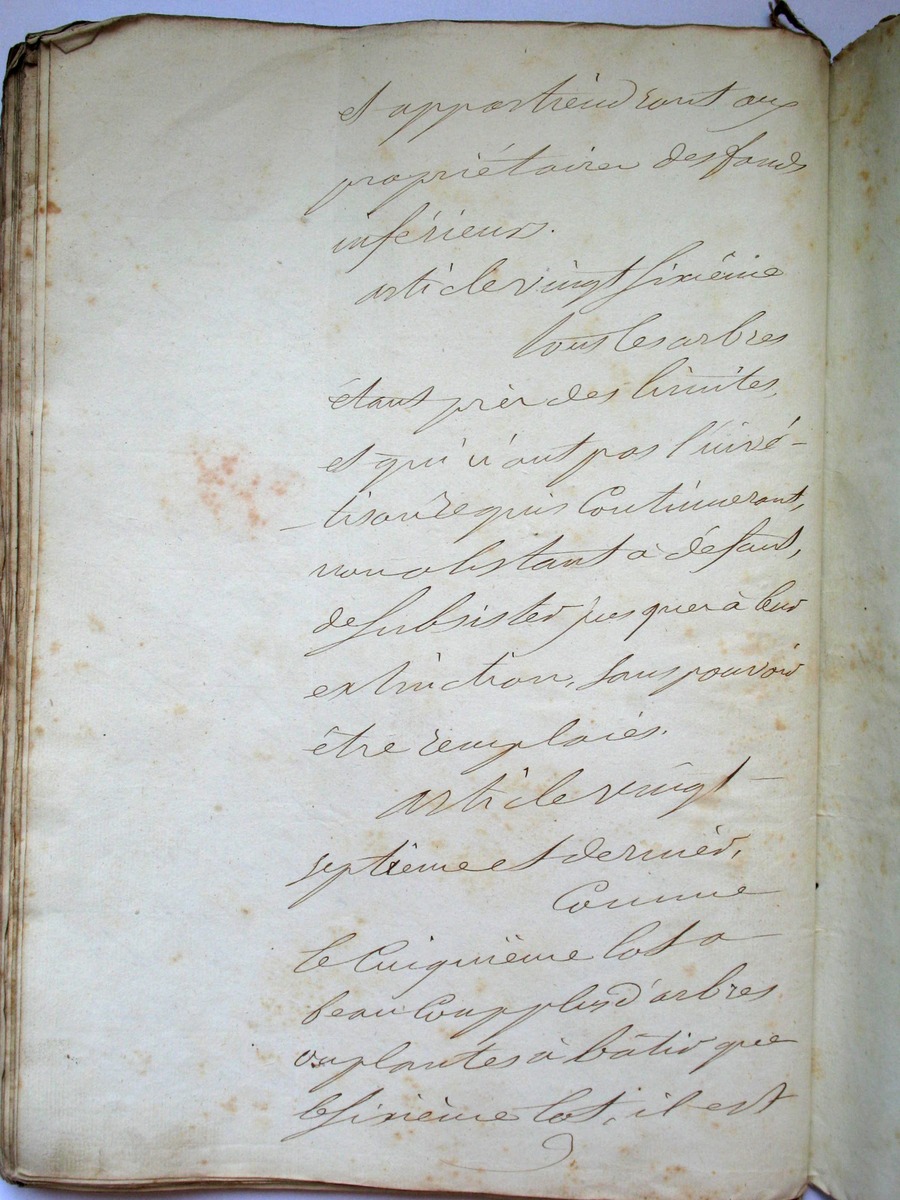 et appartiendront aux
propriétaires des fonds
inférieurs.
article vingt sixième
tous les arbres
étant près des limites,
et qui n'ont pas l'invé-
-tison requis Continueront,
nonobstant à défaut,
de subsister jusques à leur
extinction, sans pouvoir
être remplaiés.
article vingt
septième et dernier,
Comme
le Cinquième lot a
beau Coup plus d'arbres
ou plantes à bâtir que
le sixième lot, il est